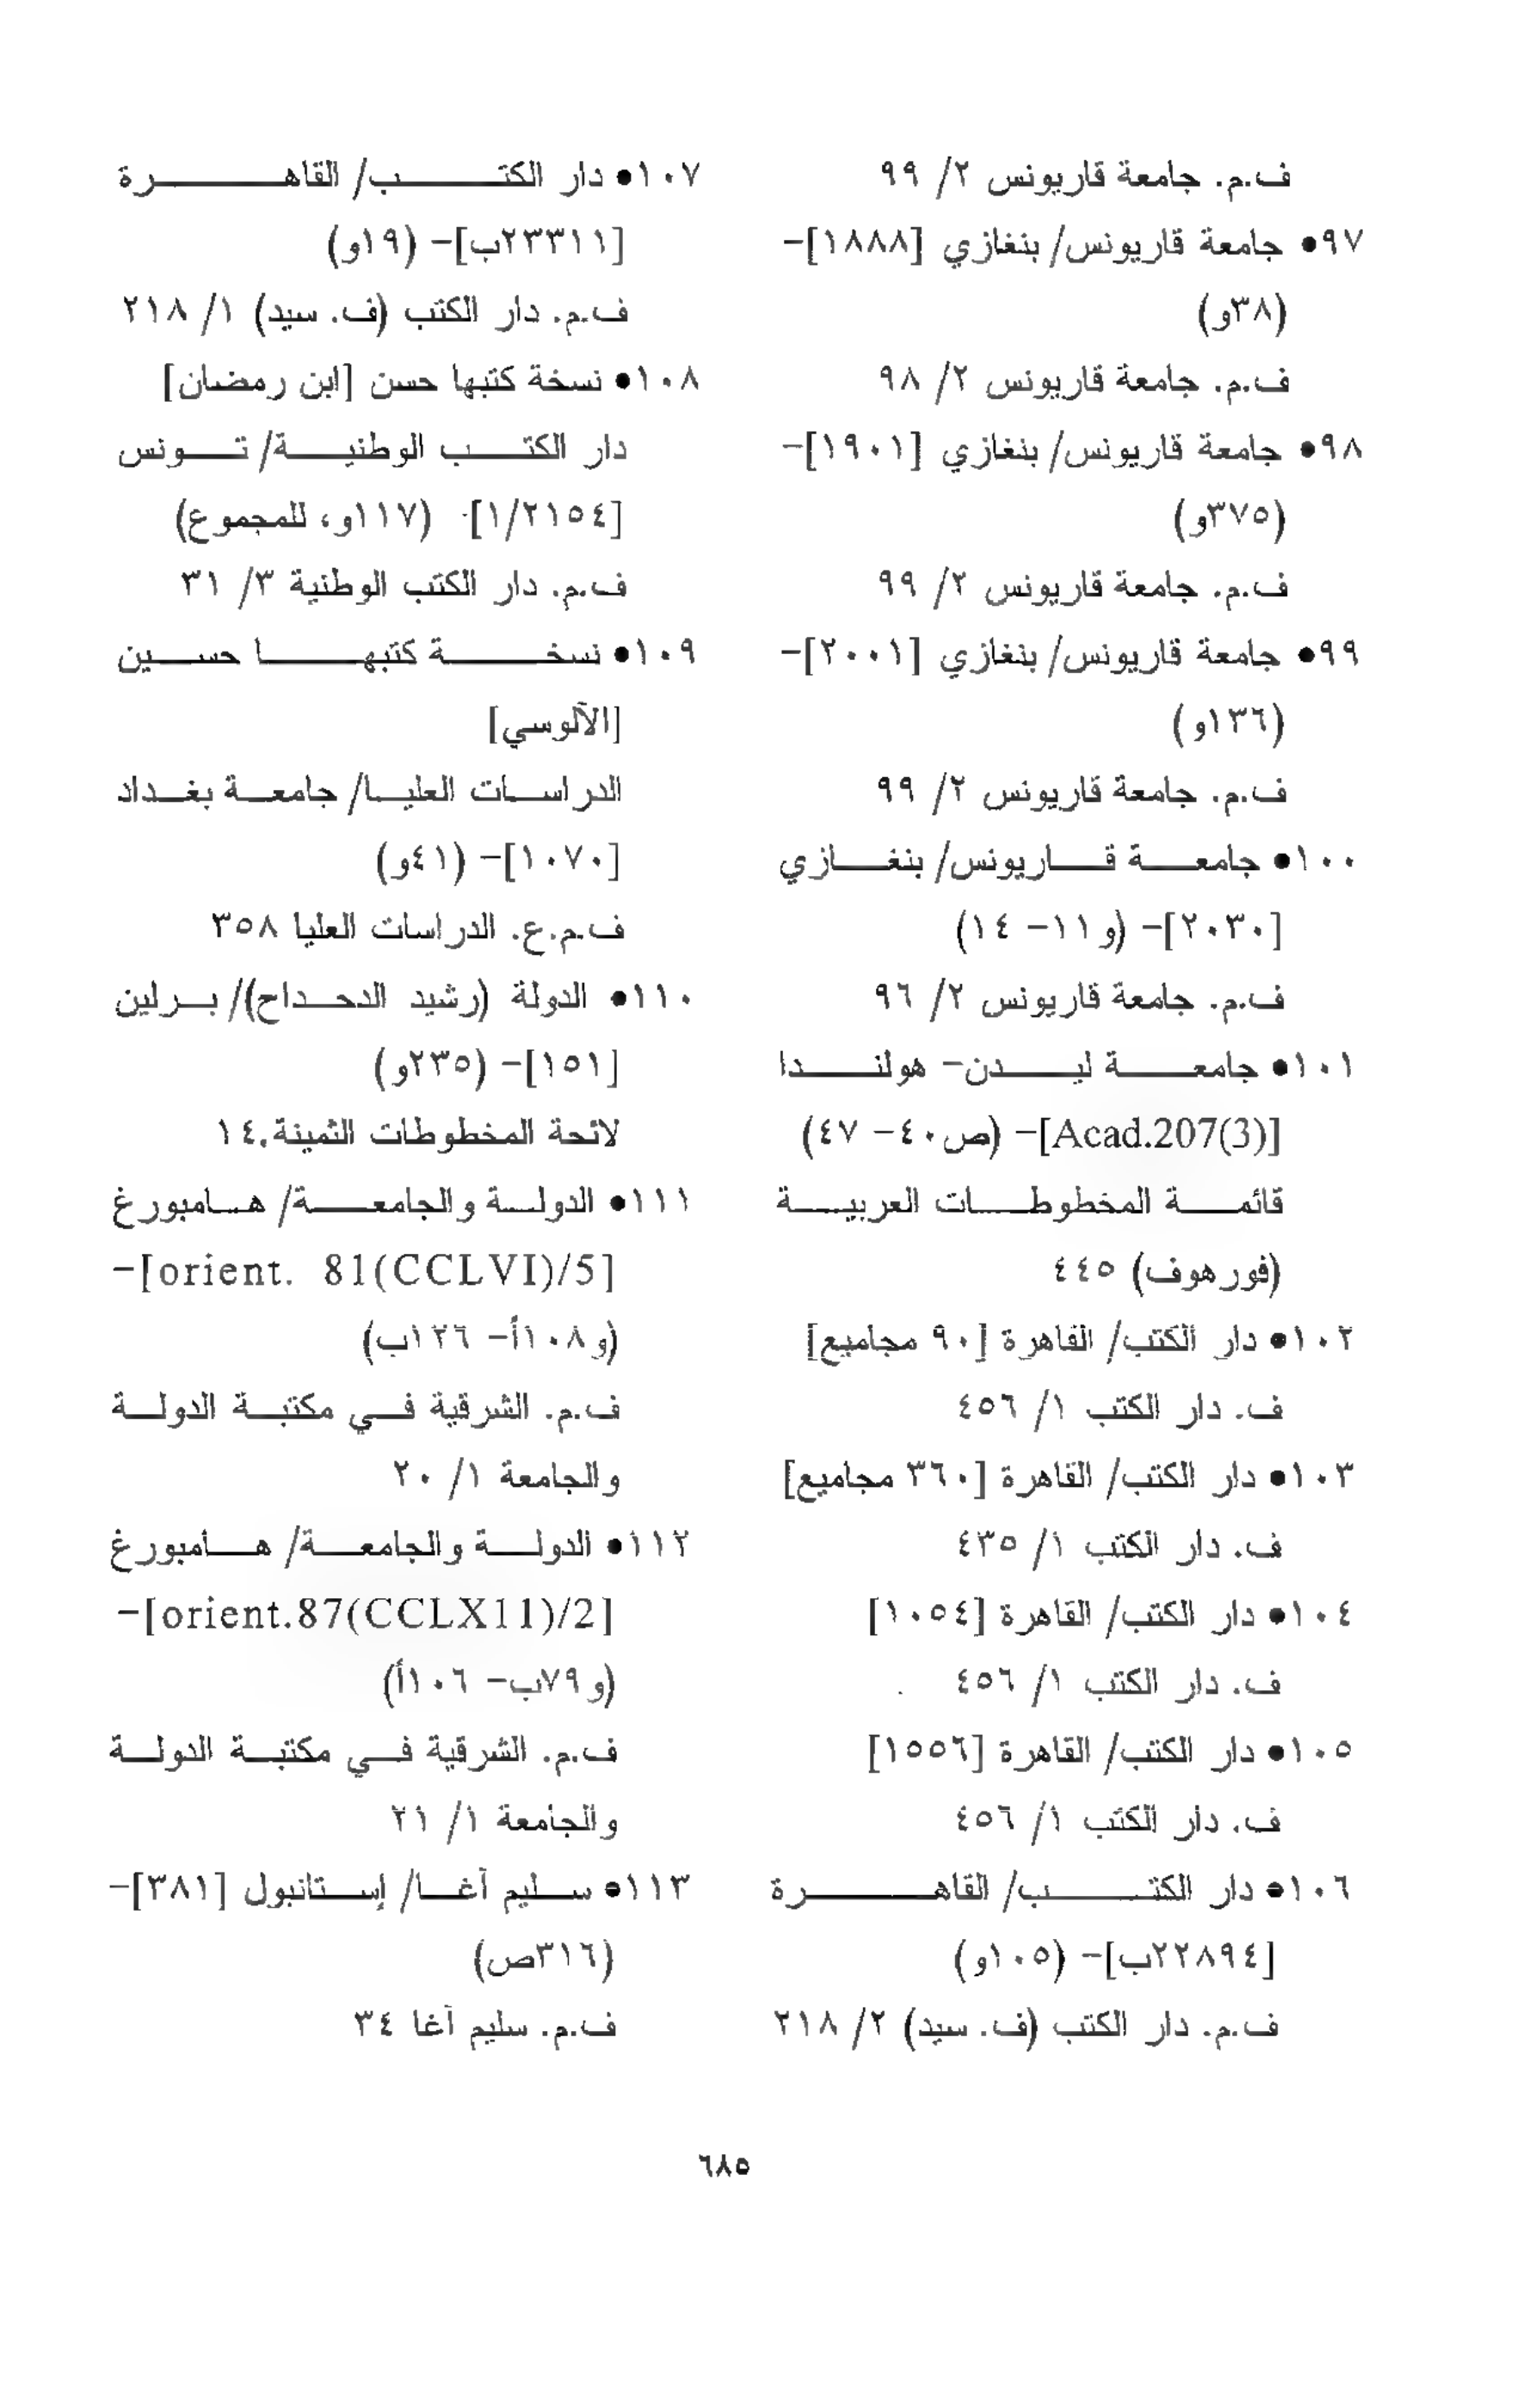 ف.م. جامعة قاريونس ٢/ ٩٩
٩٧● جامعة قاريونس/ بنغازي [١٨٨٨]-
(٣٨و)
ف.م. جامعة قاريونس ٢/ ٩٨
٩٨● جامعة قاريونس/ بنغازي [١٩٠١]-
(٣٧٥و)
ف.م. جامعة قاريونس ٢/ ٩٩
٩٩● جامعة قاريونس/ بنغازي [٢٠٠١]-
(١٣٦و)
ف.م. جامعة قاريونس ٢/ ٩٩
١٠٠● جامعة قاريونس/ بنغازي
[٢٠٣٠]- (و١١- ١٤)
ف.م. جامعة قاريونس ٢/ ٩٦
١٠١● جامعة ليدن- هولندا
[Acad.207(3)]- (ص٤٠- ٤٧)
قائمة المخطوطات العربية
(فورهوف) ٤٤٥
١٠٢● دار الكتب/ القاهرة [٩٠ مجاميع]
ف. دار الكتب ١/ ٤٥٦
١٠٣● دار الكتب/ القاهرة [٣٦٠ مجاميع]
ف. دار الكتب ١/ ٤٣٥
١٠٤● دار الكتب/ القاهرة [١٠٥٤]
ف. دار الكتب ١/ ٤٥٦
١٠٥● دار الكتب/ القاهرة [١٥٥٦]
ف. دار الكتب ١/ ٤٥٦
١٠٦● دار الكتب/ القاهرة
[٢٢٨٩٤ب]- (١٠٥و)
ف.م. دار الكتب (ف. سيد) ٢/ ٢١٨
١٠٧● دار الكتب/ القاهرة
[٢٣٣١١ب]- (١٩و)
ف.م. دار الكتب (ف. سيد) ١/ ٢١٨
١٠٨● نسخة كتبها حسن [ابن رمضان]
دار الكتب الوطنية/ تونس
[١/٢١٥٤]- (١١٧و، للمجموع)
ف.م. دار الكتب الوطنية ٣/ ٣١
١٠٩● نسخة كتبها حسين
[الآلوسي]
الدراسات العليا/ جامعة بغداد
[١٠٧٠]- (٤١و)
ف.م.ع. الدراسات العليا ٣٥٨
١١٠● الدولة (رشيد الدحداح)/ برلين
[١٥١]- (٢٣٥و)
لائحة المخطوطات الثمينة.١٤
١١١● الدولة والجامعة/ هامبورغ
[orient. 81(CCLVI)/5]-
(و١٠٨أ- ١٢٦ب)
ف.م. الشرقية في مكتبة الدولة
والجامعة ١/ ٢٠
١١٢● الدولة والجامعة/ هامبورغ
[orient.87(CCLX11)/2]-
(و٧٩ب- ١٠٦أ)
ف.م. الشرقية في مكتبة الدولة
والجامعة ١/ ٢١
١١٣● سليم آغا/ إستانبول [٣٨١]-
(٣١٦ص)
ف.م. سليم آغا ٣٤
٦٨٥